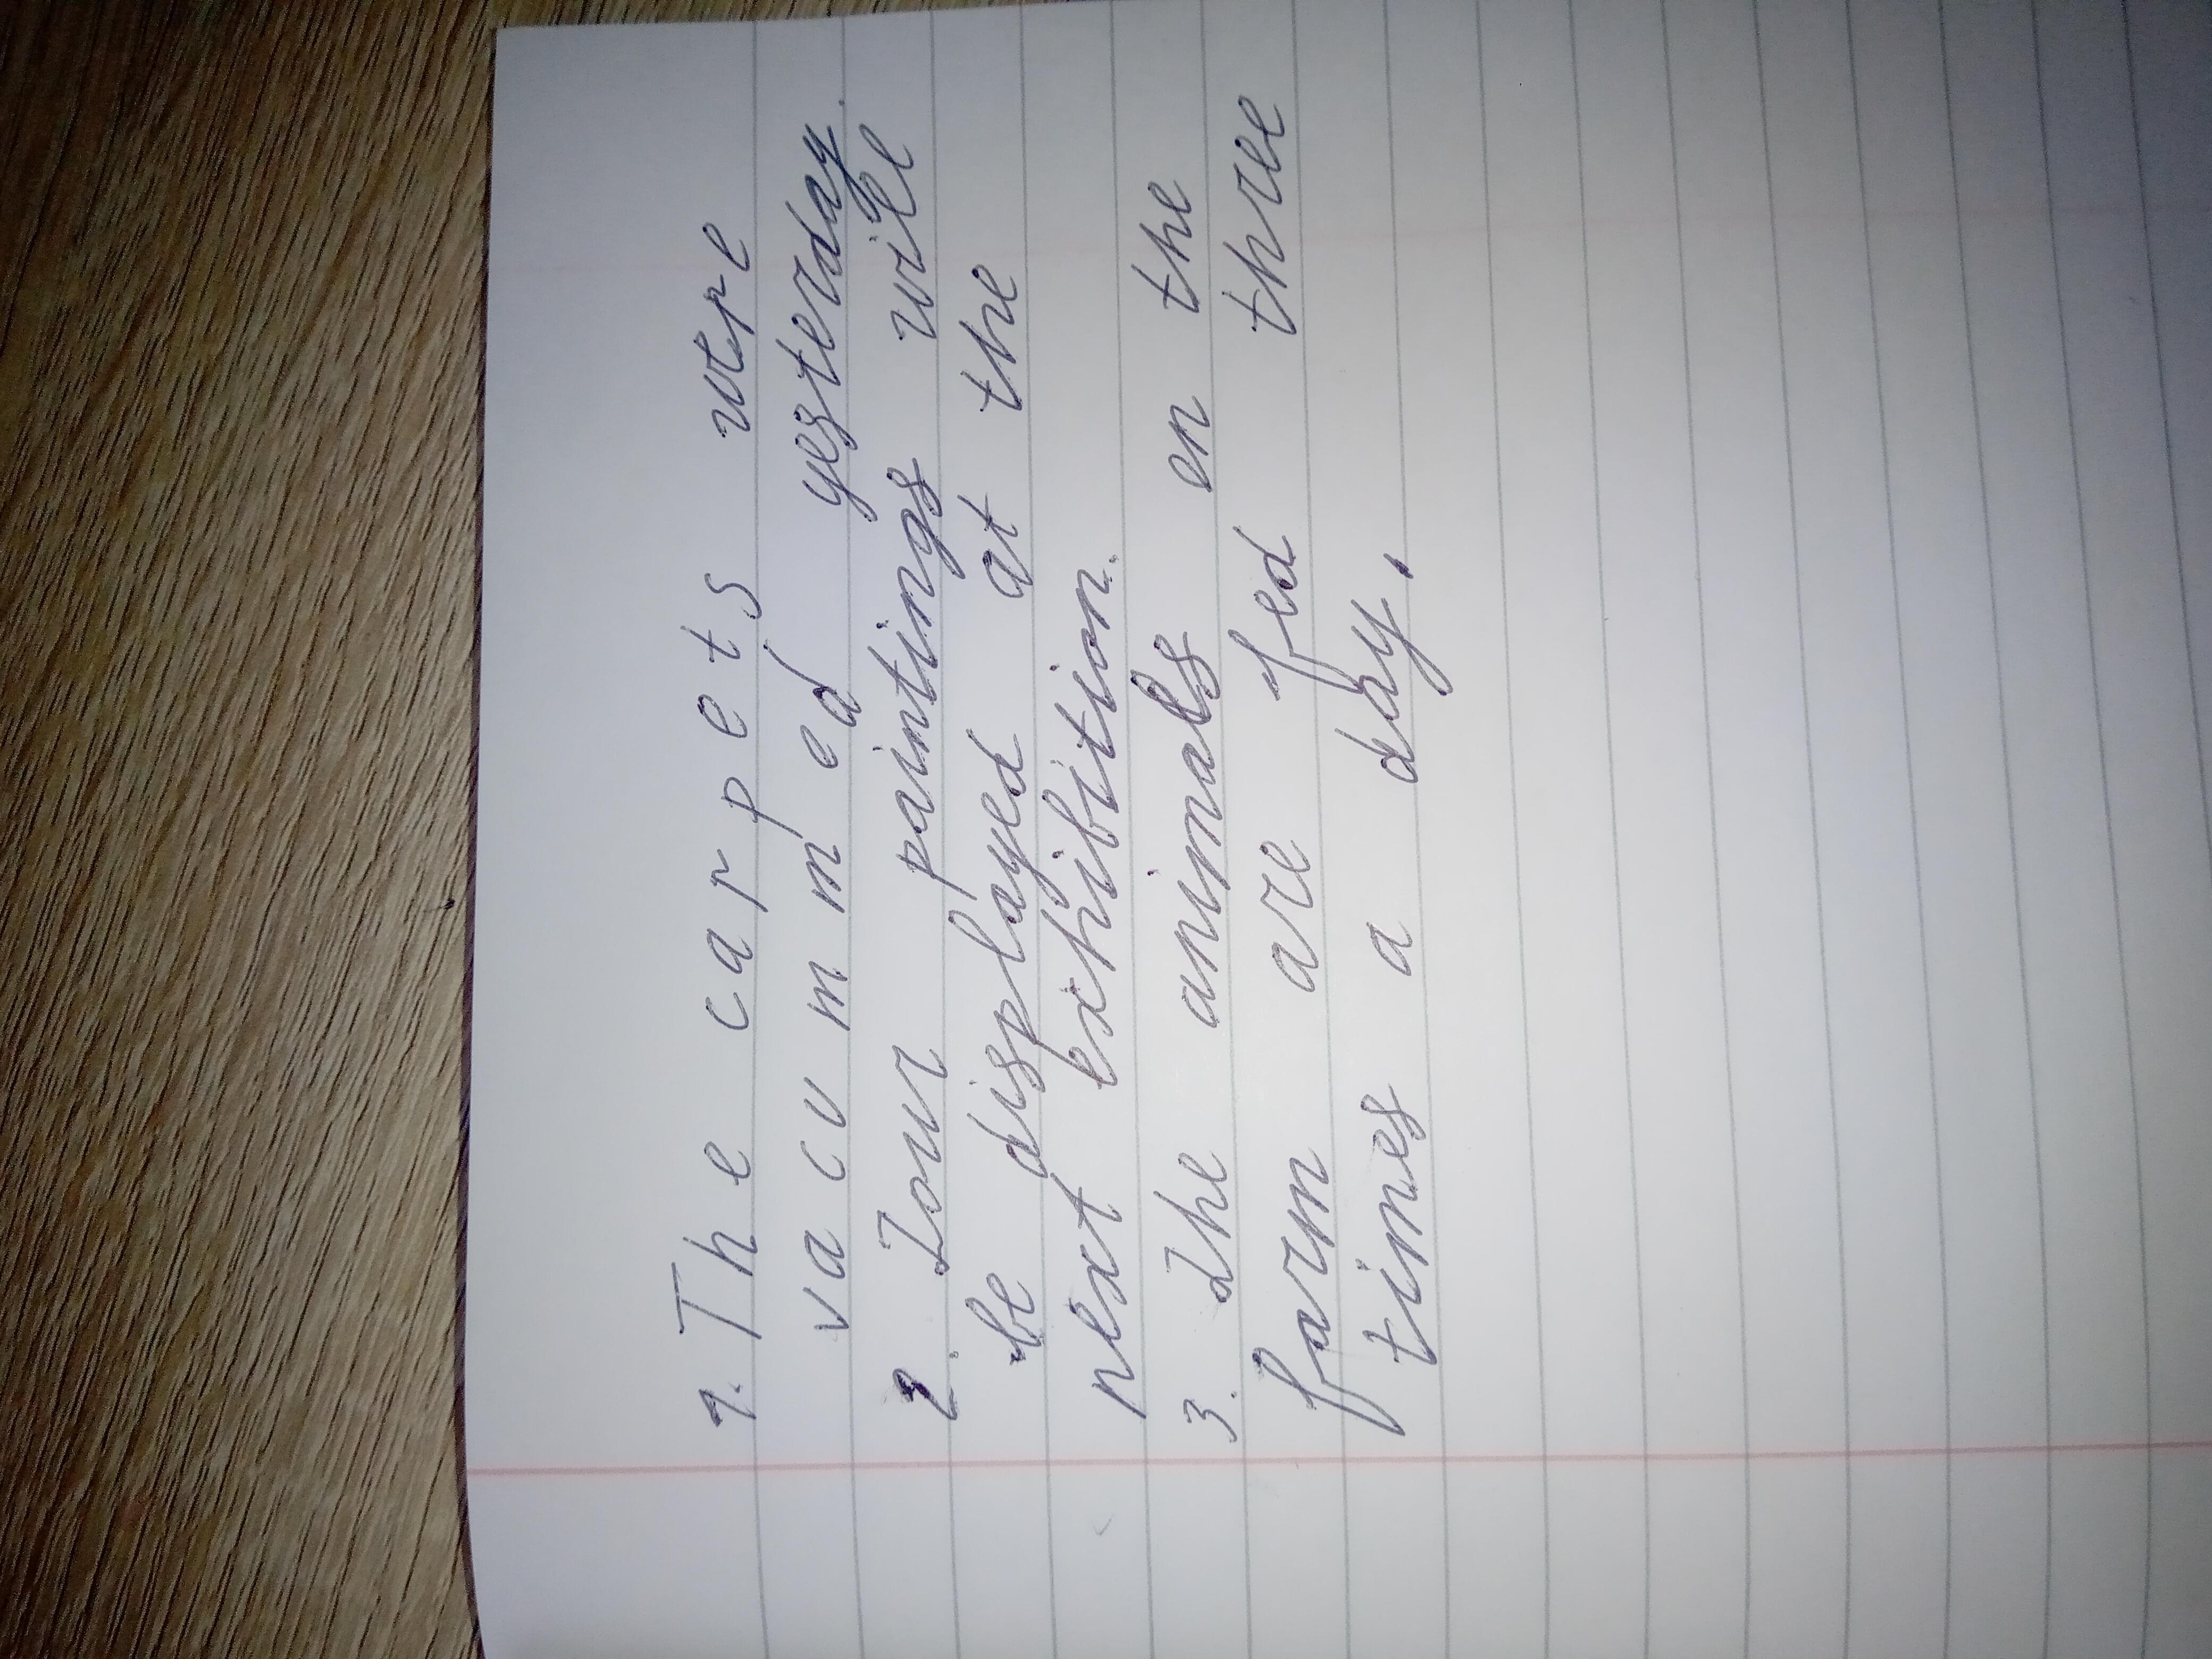 1. The carpets were
vacummed yesterday.
2. Iour paintings will
be displayed at the
next exhibition.
3. The animals en the
farm are fed three
times a day.